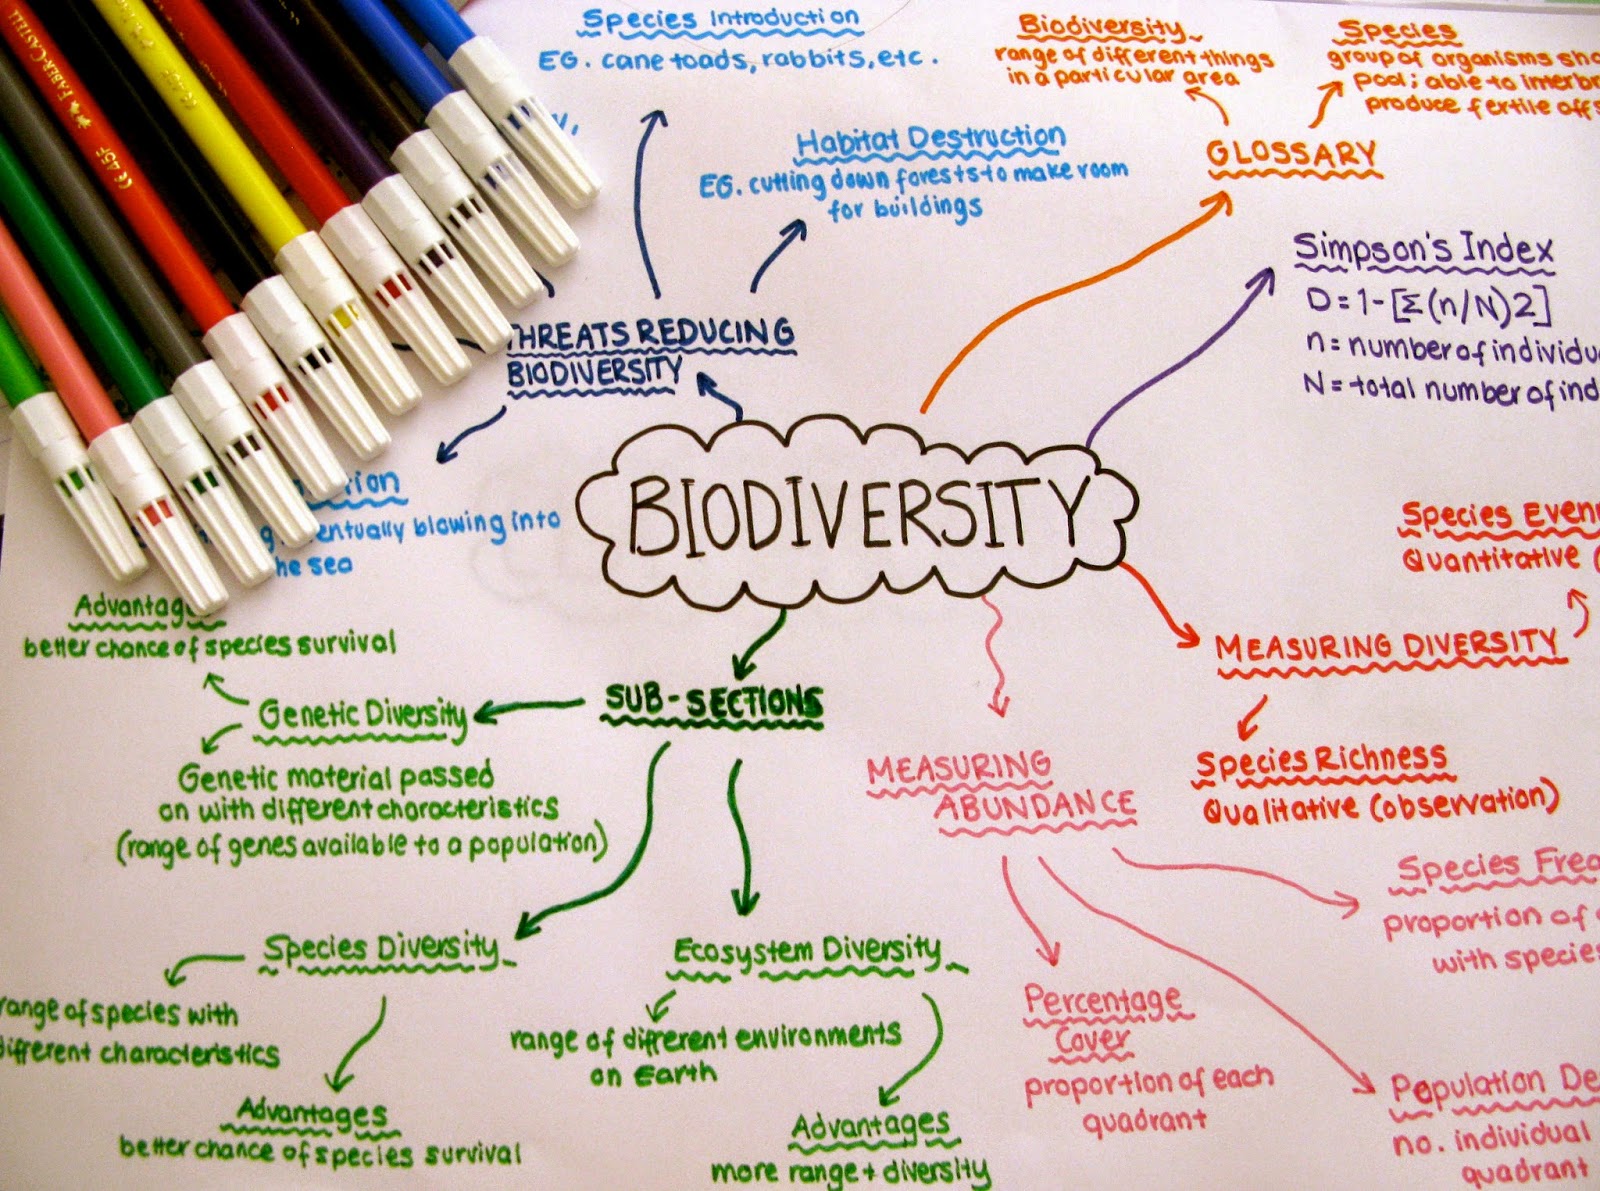 Species Introduction
EG. cane toads, rabbits, etc.
Habitat Destruction
EG. cutting down forests to make room
for buildings
THREATS REDUCING
BIODIVERSITY
eventually blowing into
the sea
Biodiversity
range of different things
in a particular area
Species
group of organisms
pool; able to
produce fertile
GLOSSARY
Simpson's Index
D = 1 - [Σ(n/N)2]
n = number of
N = total number of
BIODIVERSITY
Species
Quantitative
MEASURING DIVERSITY
Species Richness
Qualitative (observation)
MEASURING
ABUNDANCE
Species
proportion of
with species
Percentage
Cover
proportion of each
quadrant
Population
no. individual
quadrant
SUB-SECTIONS
Advantag
better chance of species survival
Genetic Diversity
Genetic material passed
on with different characteristics
(range of genes available to a population)
Species Diversity
range of species with
different characteristics
Advantages
better chance of species survival
Ecosystem Diversity
range of different environments
on Earth
Advantages
more range + diversity
FABER-CASTELL
45F